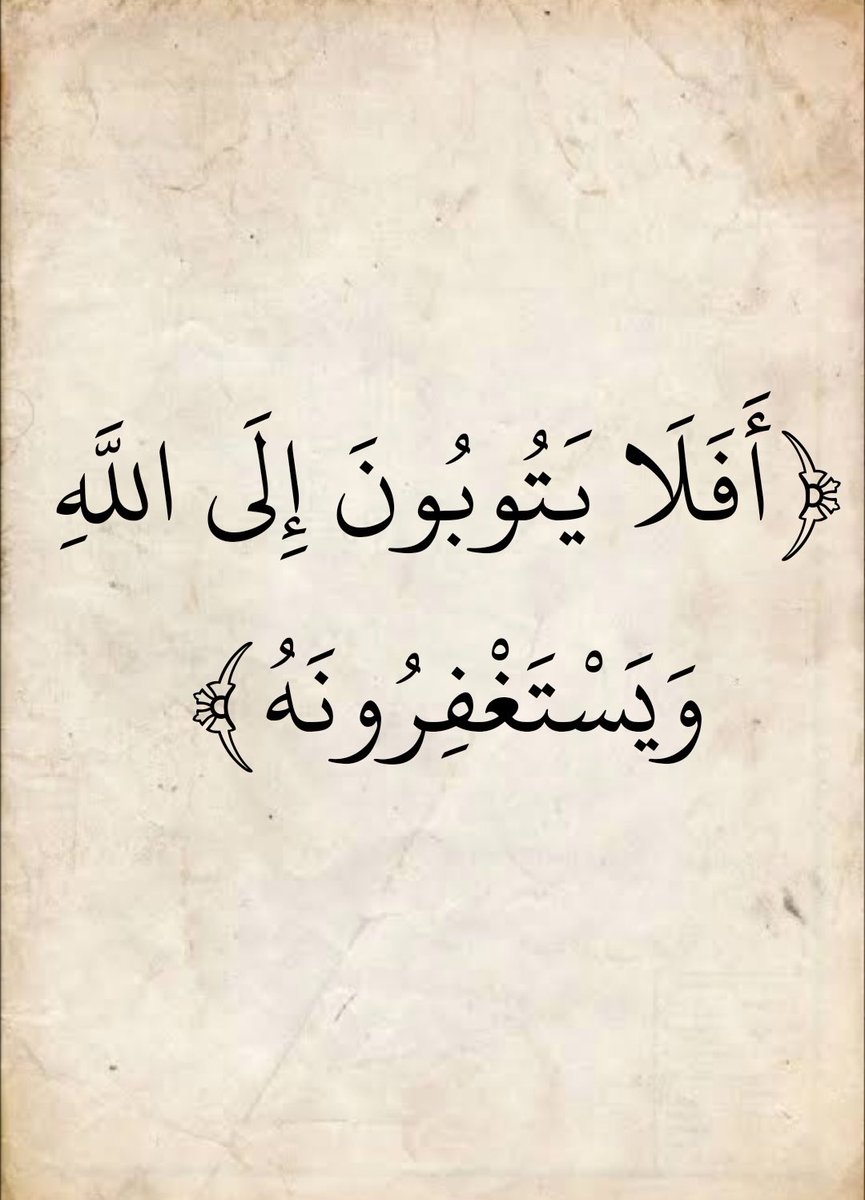 ﴿أَفَلَا يَتُوبُونَ إِلَى اللَّهِ
وَيَسْتَغْفِرُونَهُ﴾